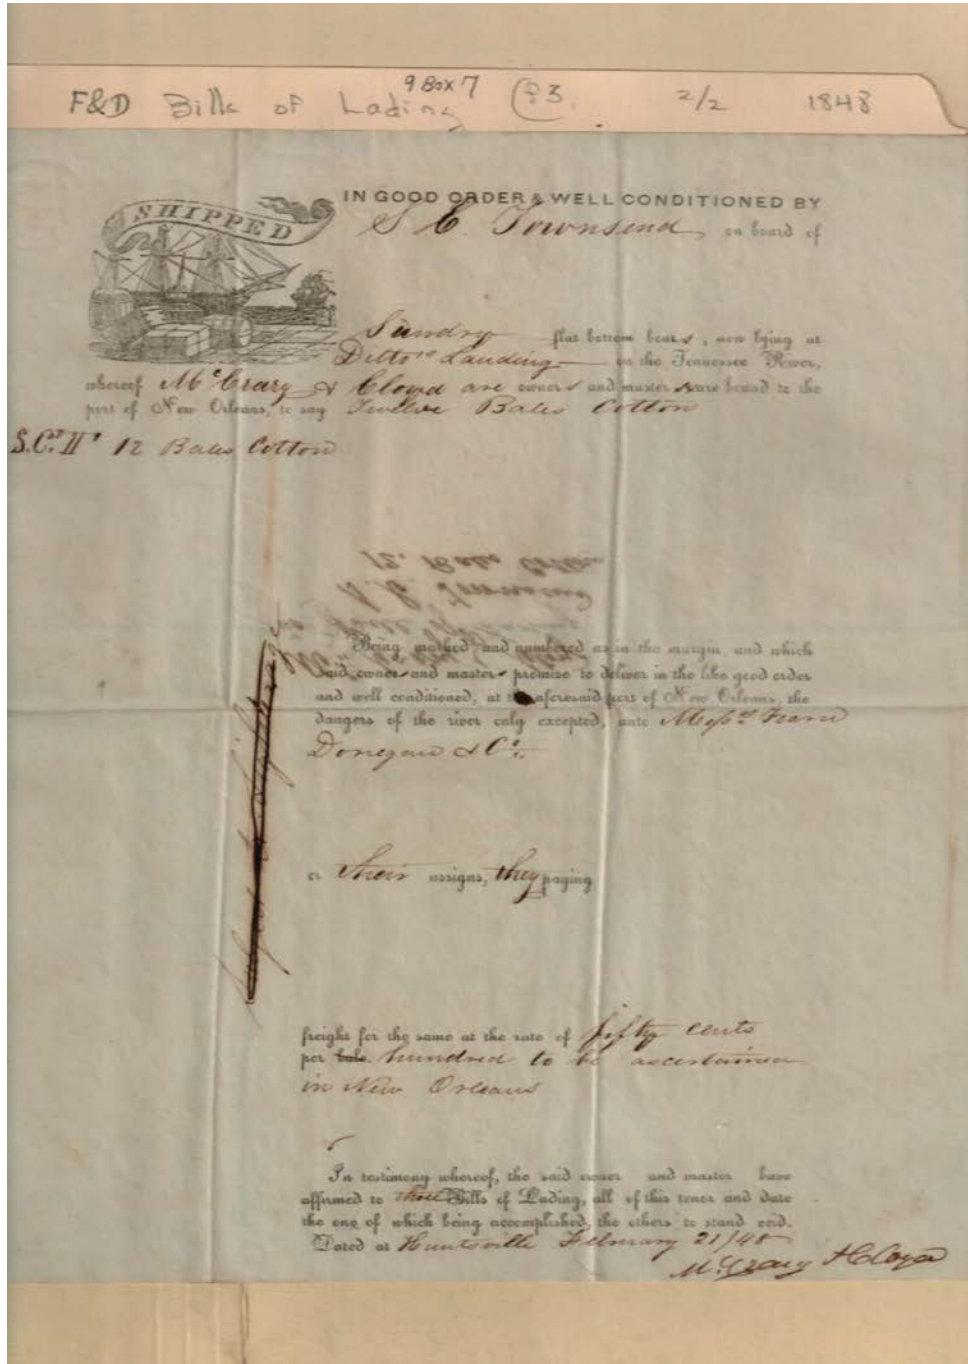 9 Box 7
F&D Bills of Lading 2/2 1848
SHIPPED
IN GOOD ORDER & WELL CONDITIONED BY
S C. Townsend, on board of
Sundry flat bottom boats, now lying at
Ditto's Landing on the Tennessee River,
whereof McCrary & Cloyd are owners and masters & are bound to the
port of New Orleans, to say Twelve Bales Cotton
12 Bales Cotton
12. Bales Cotton
Townsend
Being marked and numbered as in the margin, and which
said owners and masters promise to deliver in the like good order
and well conditioned, at the aforesaid port of New Orleans, the
dangers of the river only excepted, unto Messrs Fearn
Donegan & Co.
or their assigns, they paying
freight for the same at the rate of fifty cents
per bale. hundred to be ascertained
in New Orleans
In testimony whereof, the said owner and master have
affirmed to three Bills of Lading, all of this tenor and date
the one of which being accomplished, the others to stand void.
Dated at Huntsville February 21/48
McCrary & Cloyd